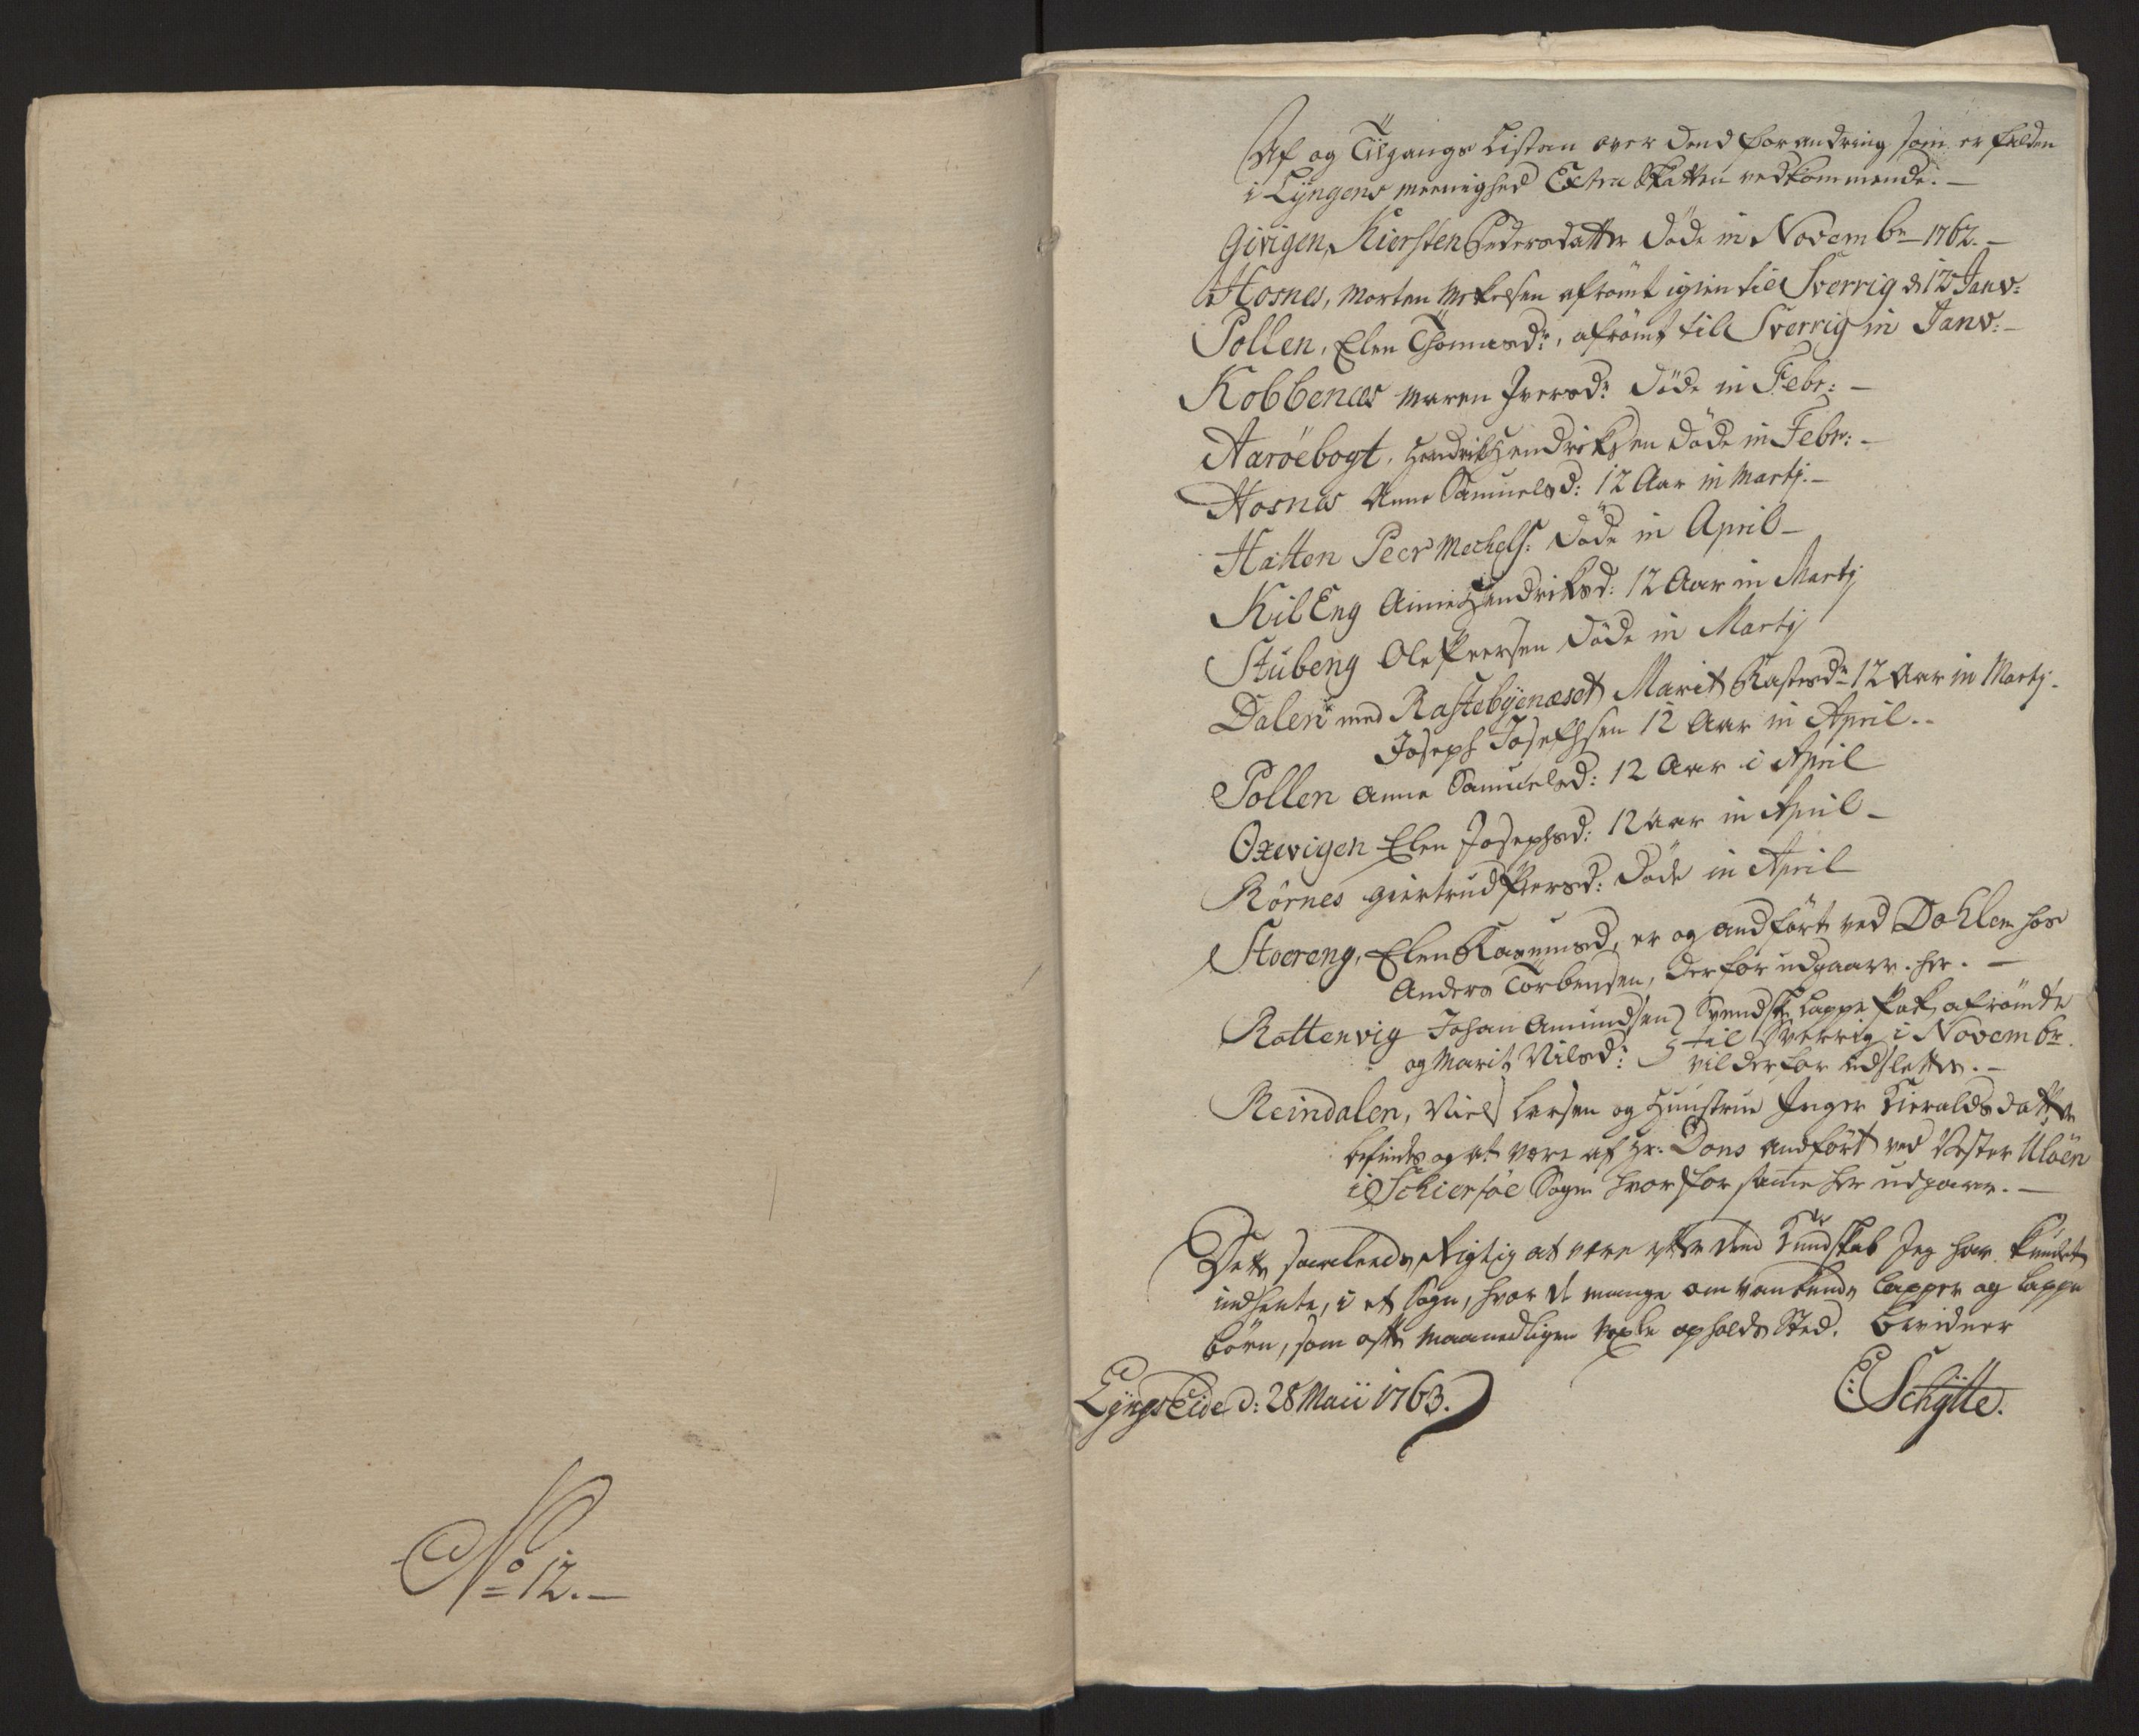 No 12.
Af og Tilgangs Listen over dend forandring som er falden
i Lyngens meenighed Extra Skatten vedkommende.
Givigen, Kiersten Pedersdatter døde in Novembr 1762.
Hosnes, Morten Mikelsen afrømt igien til Sverrig d 12 Janv:
Pollen, Elen Thomasdr, afrømt til Sverrig in Janv:
Kobbenæs Maren Iversdr døde in Febr:
Aarøebogt, Hendrik Hendriksen døde in Febr:
Hosnes Anne Samuelsd: 12 Aar in Martj.
Hatten Peer Mechels: døde in April
KilEng Aime Hendriksd: 12 Aar in Martj
Stubeng Ole Peersen døde in Martj
Dalen med Rastebyenæset Marit Rastesdr 12 Aar in Martj.
Joseph Josephsen 12 Aar in April.
Pollen Anne Samuelsd: 12 Aar i April
Oxevigen Elen Josephsd: 12 Aar in April
Rørnes Giertrud Peersd: døde in April
Stoereng, Elen Rasmusd, er og andført ved Dahlen hos
Anders Torbensen, derfor udgaar her.
Rottenvig Johan Amundsen Svendsk Lappe Pak afrømte
til Sverrig i Novembr.
og Marit Nilsd: vil derfor udslettes.
Reindalen, Niels Larsen og Huustrue Inger Kieraldsdatter
befindes og at være af Hr. Dons andført ved Vester Uløen
i Schiersøe Sogn hvorfor samme her udgaar.
Dette saaledes Rigtig at være efter dend Kundskab Jeg har kundet
indhente, i et Sogn, hvor de mange omvankende Lapper og Lappe
børn, som ofte maanedligen vexle opholds Sted. bevidner
LyngsEide d: 28 Maii 1763.
E: Schytte.